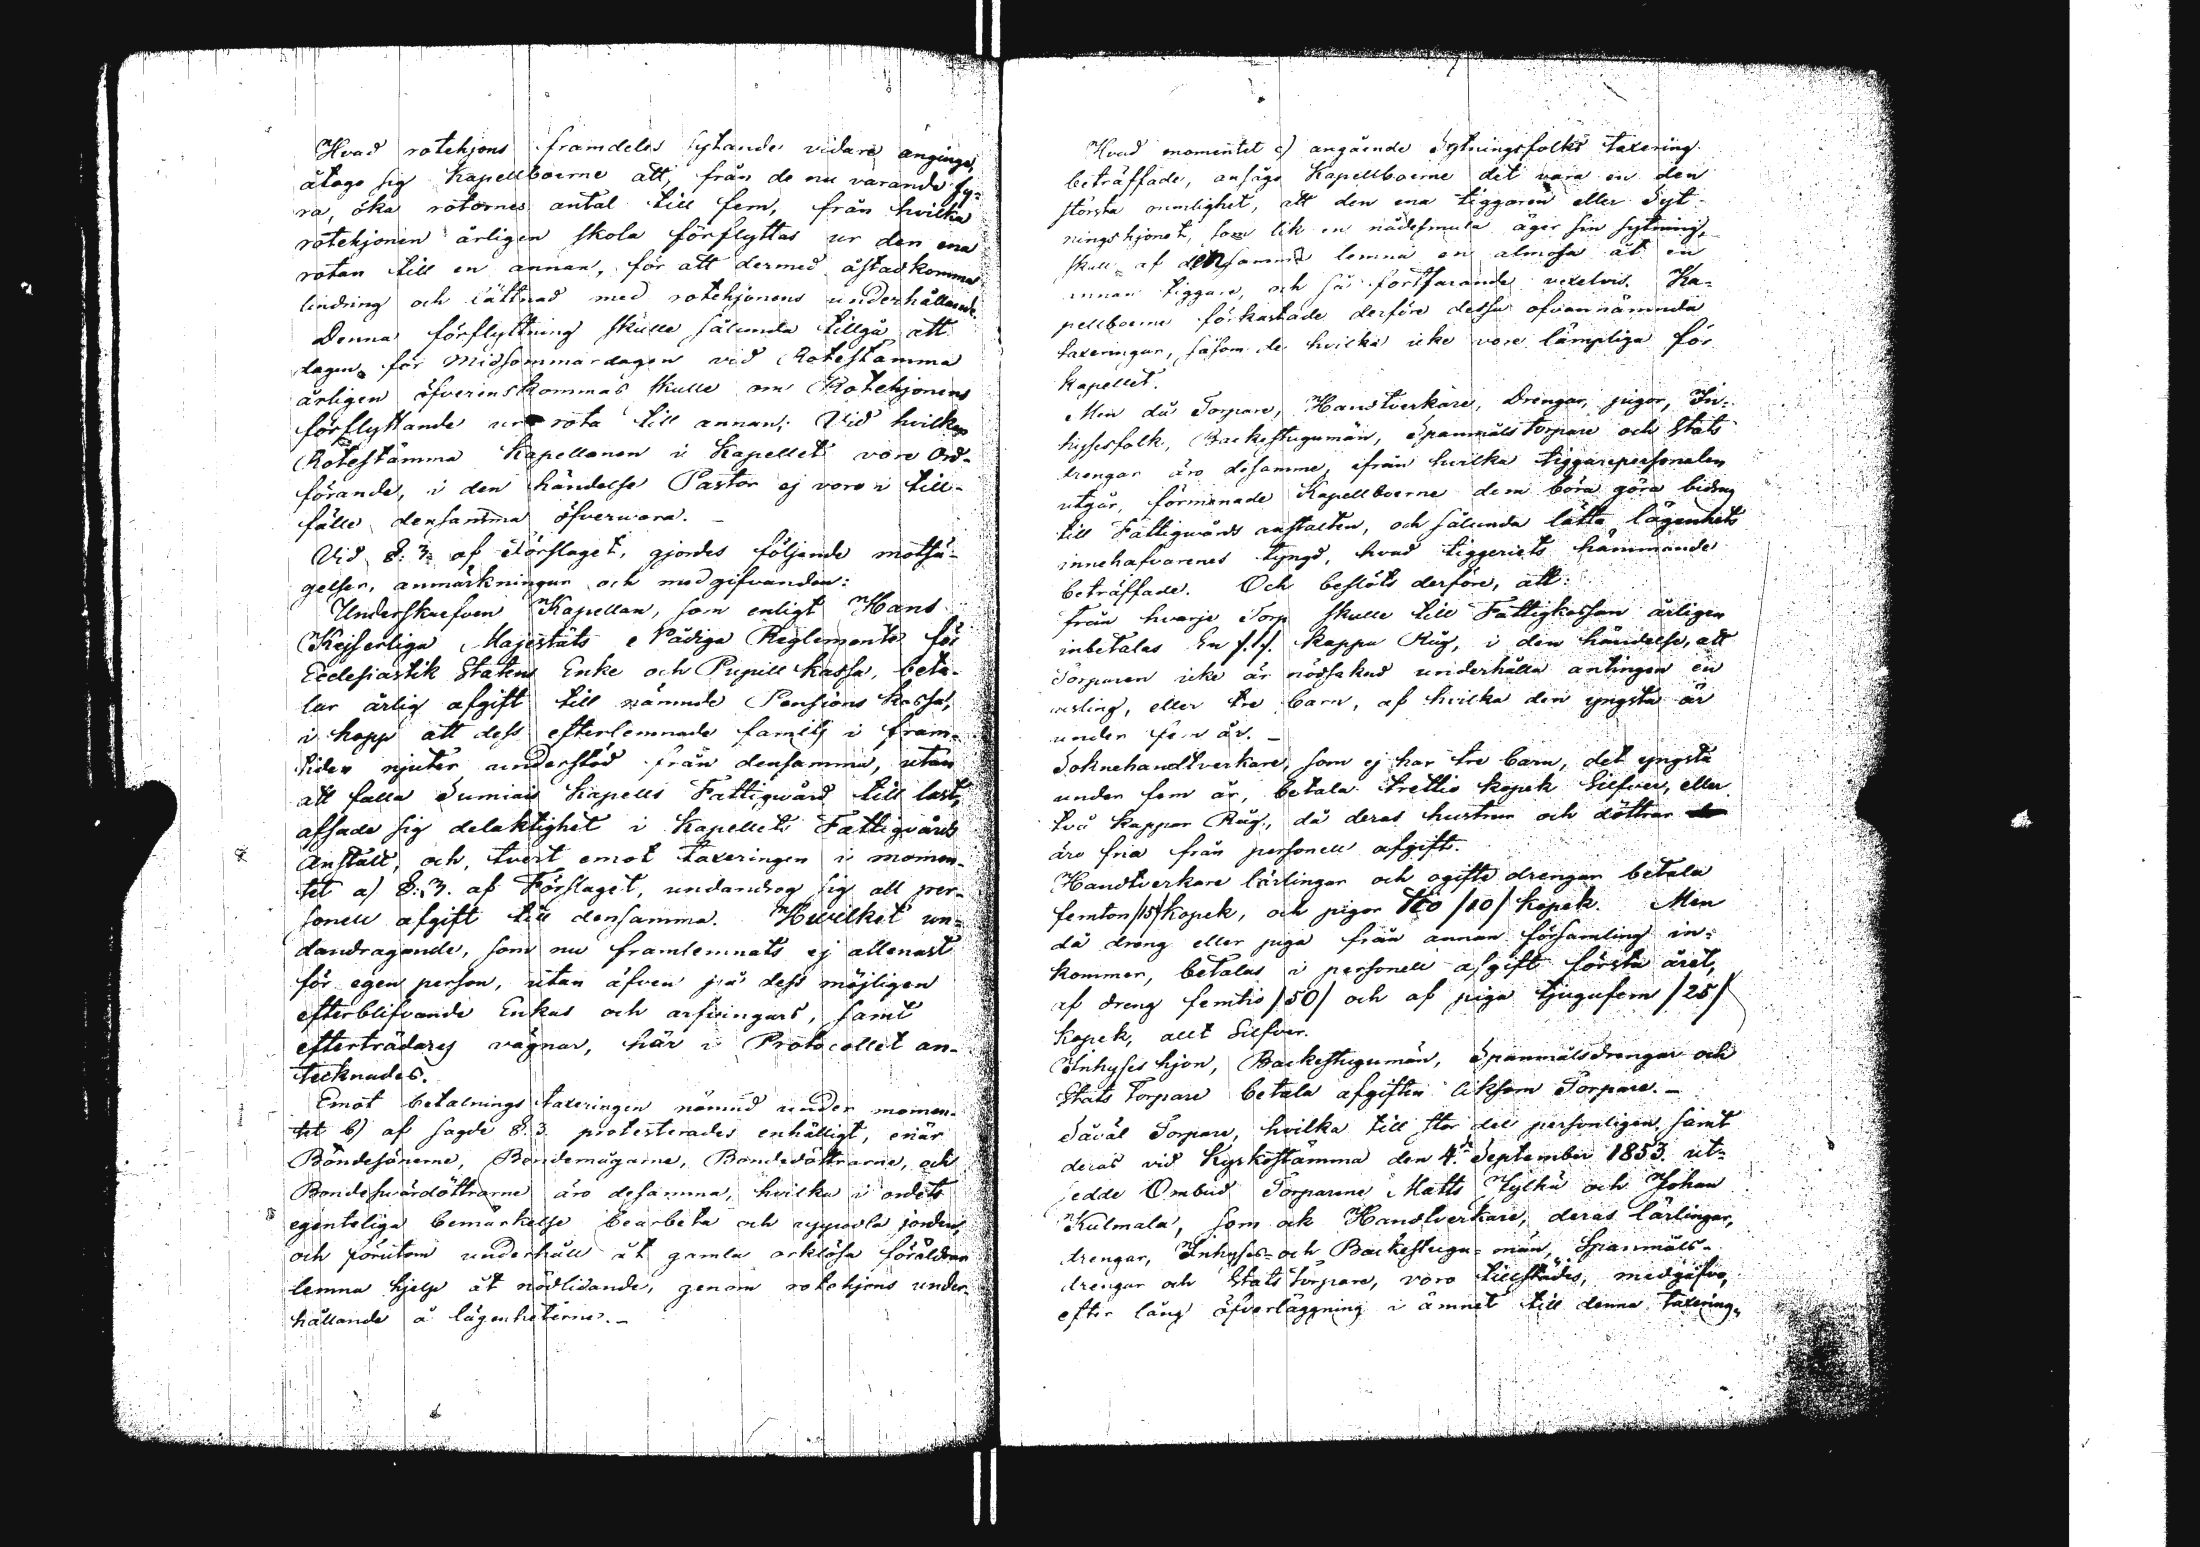 Hvad rotehjons framdeles sytande vidare anginge,
åtogo sig Kapellboerne att, från de nu varande fy-
ra, öka rotornes antal till fem, från hvilka
rotehjonen årligen skola förflyttas ur den ena
rotan till en annan, för att dermed åstadkomma
lindring och lättnad med rotehjonens underhållande.
Denna förflyttning skulle sålunda tillgå att
dagen för Midsommardagen vid Rotestämma
årligen öfverenskommas skulle om Rotehjonens
förflyttande ur rota till annan; Vid hvilken
Rotestämma Kapellanen i Kapellet vore Ord-
förande, i den händelse Pastor ej voro i till-
fälle densamma öfvervara. —
Vid §: 3 af Förslaget, gjordes följande motsä-
gelser, anmärkningar och medgifvanden:
Underskrefven Kapellan, som enligt Hans
Kejserliga Majestäts Nådiga Reglemente för
Ecclesiastik Statens Enke och Pupill Kassa, beta-
lar årlig afgift till nämnde Pensions Kassa,
i hopp att dess efterlemnade familj i fram-
tiden njuter understöd från densamma, utan
att falla Sumiais Kapells Fattigvård till last,
afsade sig delaktighet i Kapellets Fattigvårds
Anstalt, och, tvert emot taxeringen i momen-
tet a) §: 3. af Förslaget, undandrog sig all per-
sonell afgift till densamma. Hvilket un-
dandragande, som nu framlemnats ej allenast
för egen person, utan äfven på dess möjligen
efterblifvande Enkas och arfvingars, samt
efterträdares vägnar, här i Protocollet an-
tecknades.
Emot betalnings taxeringen nämnd under momen-
tet b) af sagde §: 3 protesterades enhälligt, enär
Bondesönerne, Bondemågarne, Bondedöttrarne, och
Bondesvärdöttrarne äro desamma, hvilka i ordets
egenteliga bemärkelse bearbeta och uppodla jorden,
och förutom underhåll åt gamla orklösa föräldrar
lemna hjelp åt nödlidande, genom rotehjons under-
hållande å lägenheterne. —
Hvad momentet c) angående Sytningsfolks taxering
beträffade, ansågo Kapellboerne det vara en den
största orimlighet, att den ena tiggaren eller Syt-
ningshjonet, som lik en nådesmula äger sin sytning,
skall af densamma lemna en almosa åt en
annan tiggare, och så fortfarande vexelvis. Ka-
pellboerne förkastade derföre dessa ofvannämnda
taxeringar, såsom de hvilka icke vore lämpliga för
Kapellet.
Men då Torpare, Handtverkare, Drengar, pigor, In-
hysesfolk, Backestugumän, Spanmåls torpare och Stats
drengar äro desamme, ifrån hvilka tiggarepersonalen
utgår, förmanade Kapellboerne dem böra göra bidrag
till Fattigvårds anstalten, och sålunda lätta lägenhets
innehafvarenes tyngd, hvad tiggeriets hämmande
beträffade. Och beslöts derföre, att:
från hvarje Torp skulle till Fattigkassan årligen
inbetalas En f.f. kappa Råg, i den händelse, att
Torparen icke är nödsakad underhålla antingen en
vesling, eller tre barn, af hvilka den yngsta är
under fem år. —
Soknehandtverkare, som ej har tre barn, det yngsta
under fem år, betala trettio kopek Silfver, eller
två kappar Råg, då deras hustrur och döttrar
äro fria från personell afgift.
Handtverkare lärlingar och ogifte drengar betala
femton /15/ kopek, och pigor tio /10/ kopek. Men
då dreng eller piga från annan församling in-
kommer, betalas i personell afgift första året,
af dreng femtio /50/ och af piga tjugufem /25/
kopek, allt Silfver.
Inhyses hjon, Backestugumän, Spanmålsdrengar och
Stats torpare betala afgiften liksom Torpare. —
Såväl Torpare, hvilka till stor del personligen, samt
deras vid Kyrkostämma den 4de September 1853. ut-
sedde Ombud Torparene Matts Hylkä och Johan
Kulmala, som ock Handtverkare, deras lärlingar,
drengar, Inhyses- och Backestugu-män, Spanmåls-
drengar och Stats torpare, voro tillstädes, medgåfvo,
efter lång öfverläggning i ämnet till denna taxering,